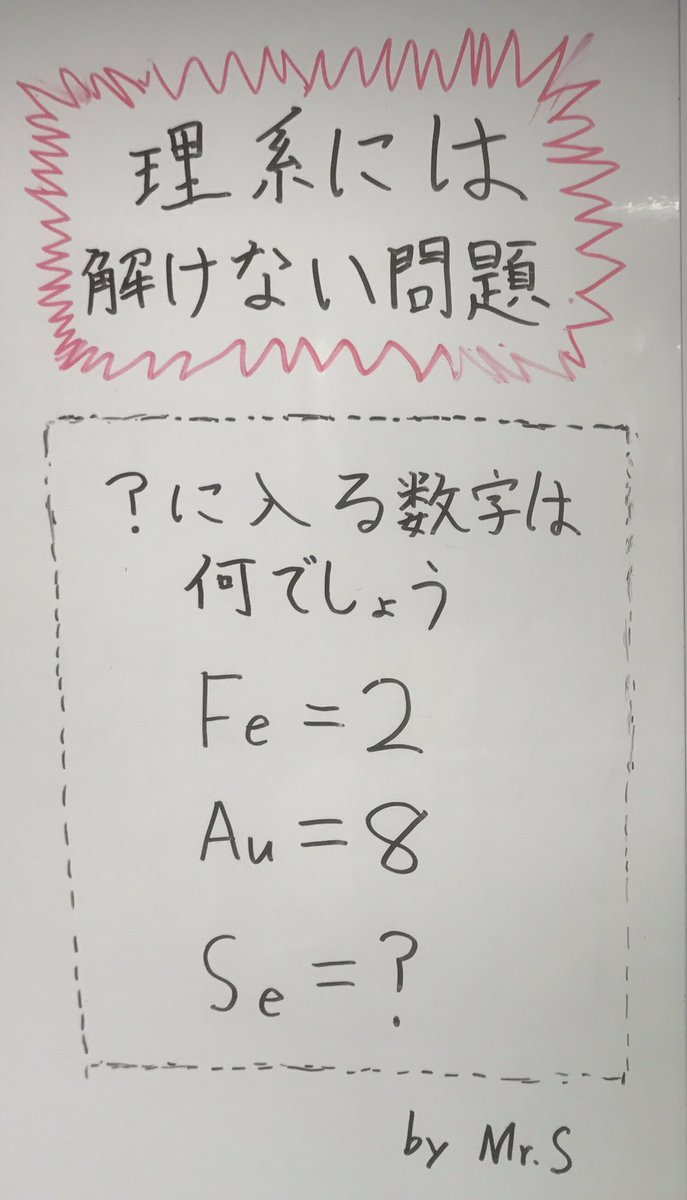 理系には
解けない問題
?に入る数字は
何でしょう
Fe=2
Au=8
Se=?
by Mr.S